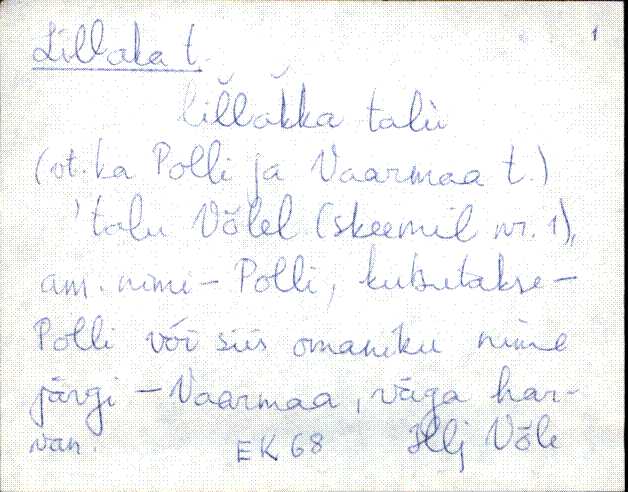 1
Lillaka t.
lillakka talù
(vt. ka Polli ja Vaarmaa t.)
'talu Võlel (skeemil nr. 1),
am. nimi - Polli, kutsutakse -
Polli või siis omaniku nime
järgi - Vaarmaa, väga har-
van. EK 68 Hlj Võle